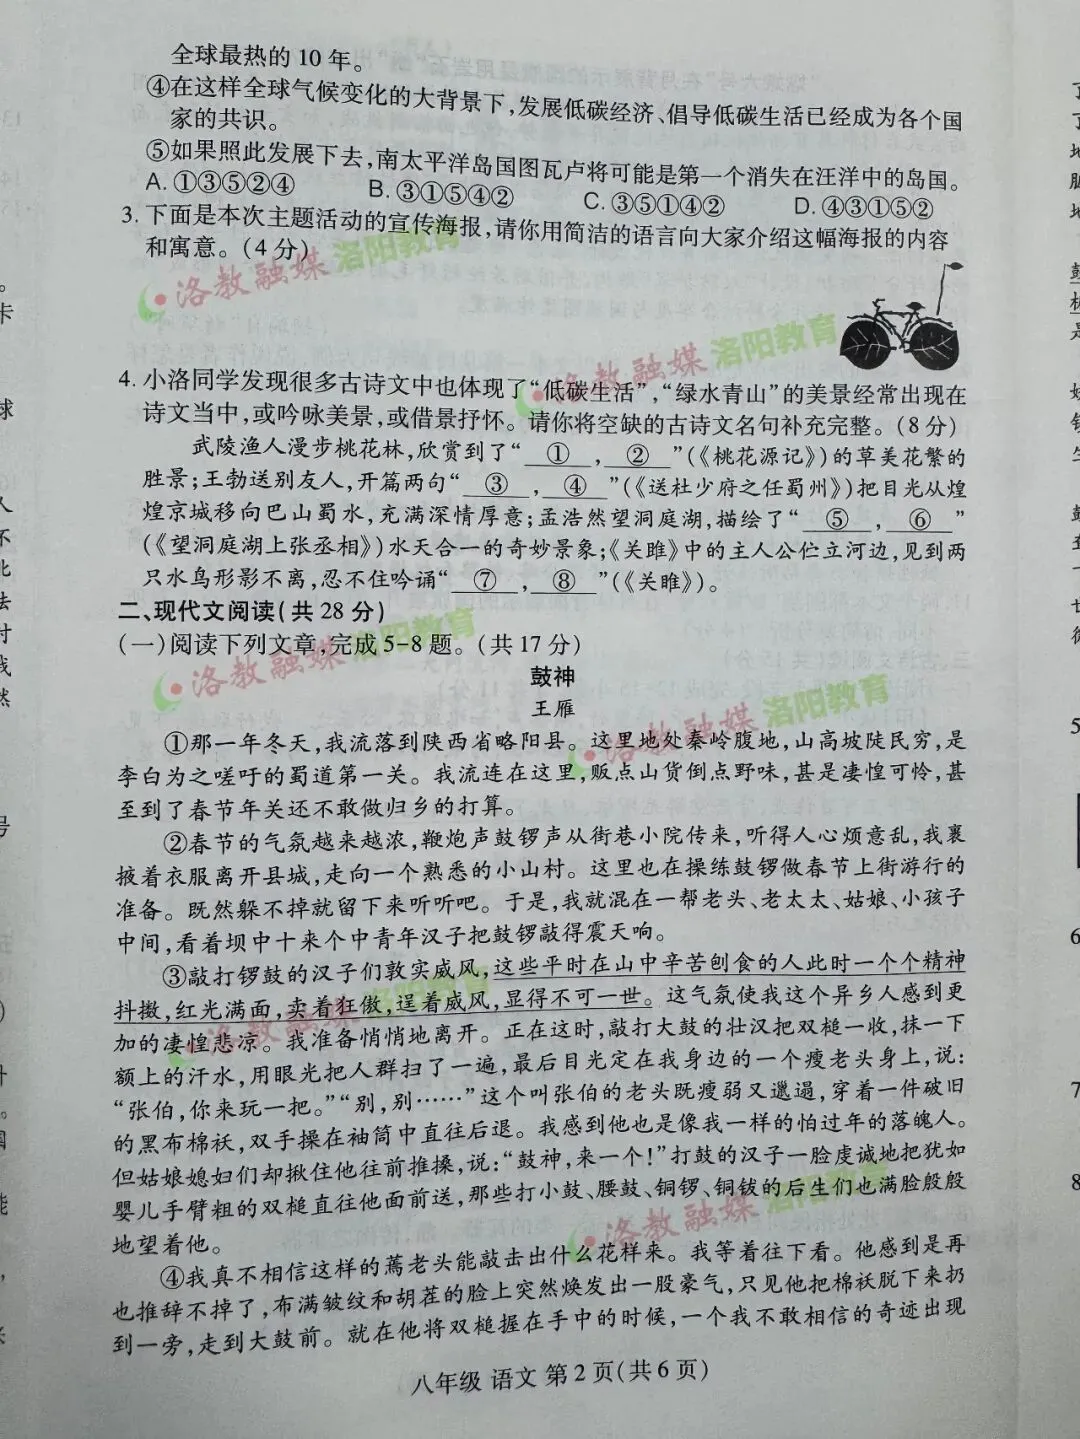 全球最热的10年。
④在这样全球气候变化的大背景下,发展低碳经济、倡导低碳生活已经成为各个国
家的共识。
⑤如果照此发展下去,南太平洋岛国图瓦卢将可能是第一个消失在汪洋中的岛国。
A. ①③⑤②④ B. ③①⑤④② C. ③⑤①④② D. ④③①⑤②
3. 下面是本次主题活动的宣传海报,请你用简洁的语言向大家介绍这幅海报的内容
和寓意。(4分)
洛教融媒 洛阳教育
洛教融媒 洛阳教育
4. 小洛同学发现很多古诗文中也体现了“低碳生活”,“绿水青山”的美景经常出现在
诗文当中,或吟咏美景,或借景抒怀。请你将空缺的古诗文名句补充完整。(8分)
武陵渔人漫步桃花林,欣赏到了“ ① , ② ”(《桃花源记》)的草美花繁的
胜景;王勃送别友人,开篇两句“ ③ , ④ ”(《送杜少府之任蜀州》)把目光从煌
煌京城移向巴山蜀水,充满深情厚意;孟浩然望洞庭湖,描绘了“ ⑤ , ⑥ ”
(《望洞庭湖上张丞相》)水天合一的奇妙景象;《关雎》中的主人公伫立河边,见到两
只水鸟形影不离,忍不住吟诵“ ⑦ , ⑧ ”(《关雎》)。
二、现代文阅读(共28分)
(一)阅读下列文章,完成5-8题。(共17分)
洛教融媒 洛阳教育
鼓神
王雁
洛教融媒 洛阳教育
①那一年冬天,我流落到陕西省略阳县。这里地处秦岭腹地,山高坡陡民穷,是
李白为之嗟吁的蜀道第一关。我流连在这里,贩点山货倒点野味,甚是凄惶可怜,甚
至到了春节年关还不敢做归乡的打算。
②春节的气氛越来越浓,鞭炮声鼓锣声从街巷小院传来,听得人心烦意乱,我裹
掖着衣服离开县城,走向一个熟悉的小山村。这里也在操练鼓锣做春节上街游行的
准备。既然躲不掉就留下来听听吧。于是,我就混在一帮老头、老太太、姑娘、小孩子
中间,看着坝中十来个中青年汉子把鼓锣敲得震天响。
③敲打锣鼓的汉子们敦实威风,这些平时在山中辛苦刨食的人此时一个个精神
抖擞,红光满面,卖着狂傲,逞着威风,显得不可一世。这气氛使我这个异乡人感到更
加的凄惶悲凉。我准备悄悄地离开。正在这时,敲打大鼓的壮汉把双槌一收,抹一下
额上的汗水,用眼光把人群扫了一遍,最后目光定在我身边的一个瘦老头身上,说:
“张伯,你来玩一把。”“别,别……”这个叫张伯的老头既瘦弱又邋遢,穿着一件破旧
的黑布棉袄,双手操在袖筒中直往后退。我感到他也是像我一样的怕过年的落魄人。
但姑娘媳妇们却揪住他往前推搡,说:“鼓神,来一个!”打鼓的汉子一脸虔诚地把犹如
婴儿手臂粗的双槌直往他面前送,那些打小鼓、腰鼓、铜锣、铜钹的后生们也满脸殷殷
地望着他。
洛教融媒 洛阳教育
④我真不相信这样的蔫老头能敲击出什么花样来。我等着往下看。他感到是再
也推辞不掉了,布满皱纹和胡茬的脸上突然焕发出一股豪气,只见他把棉袄脱下来扔
到一旁,走到大鼓前。就在他将双槌握在手中的时候,一个我不敢相信的奇迹出现
八年级 语文 第2页(共6页)